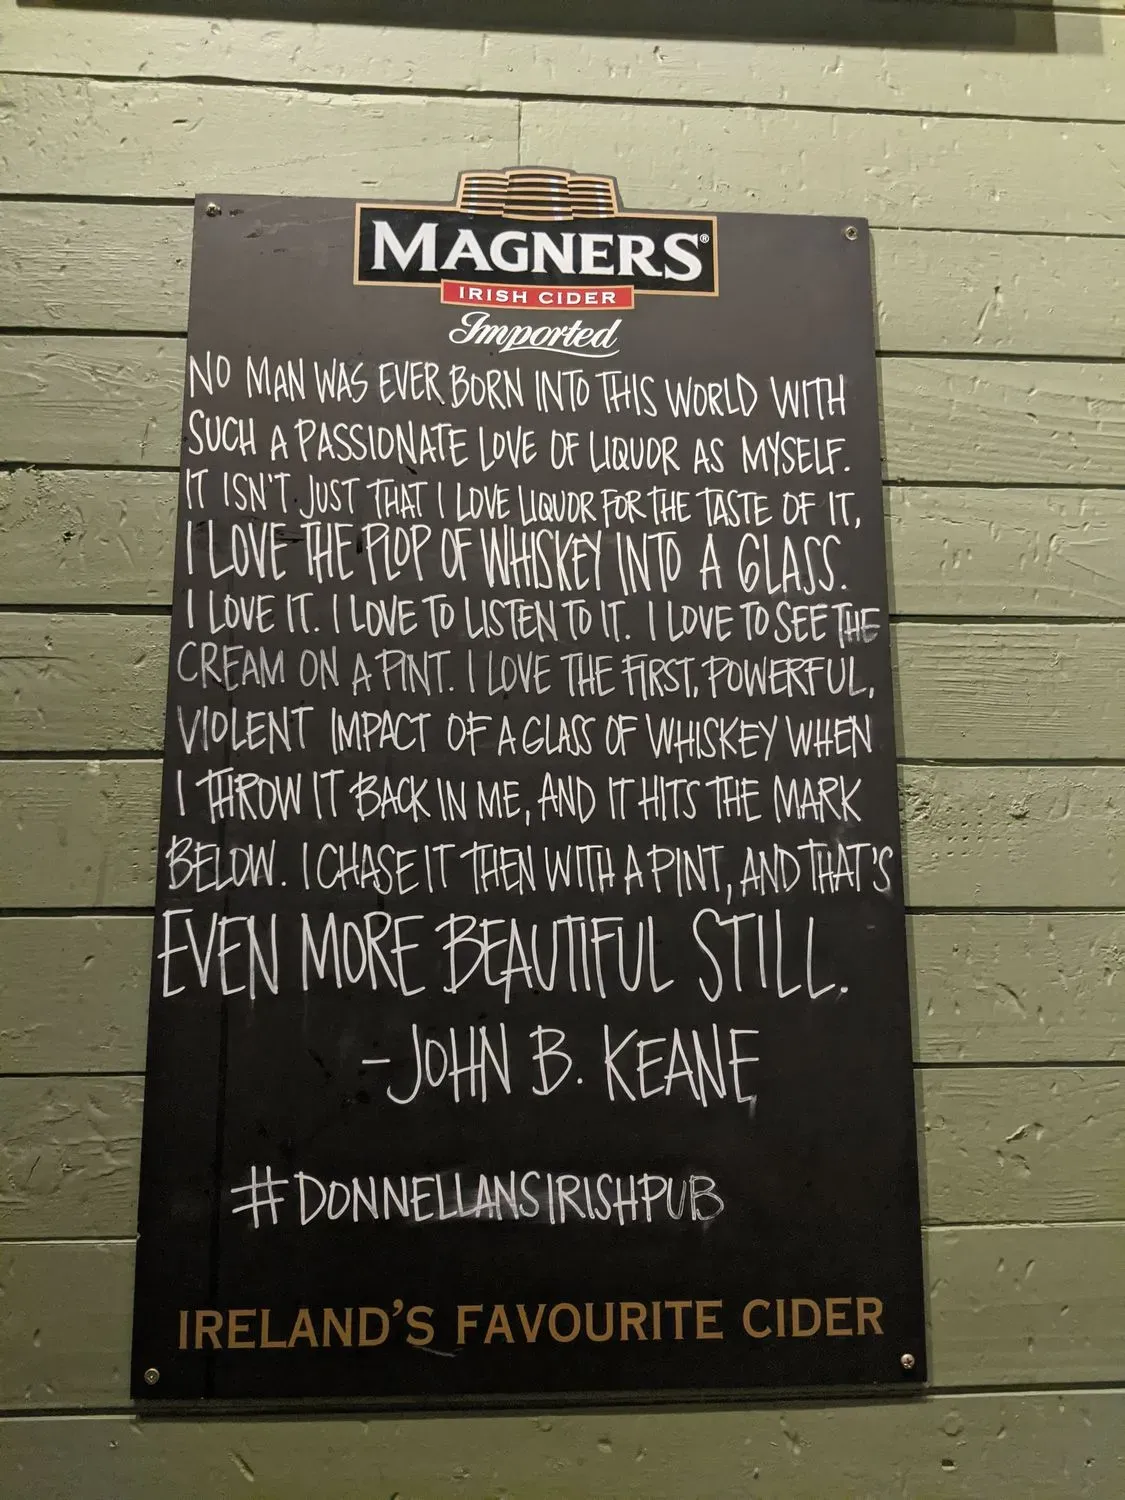 MAGNERS®
IRISH CIDER
Imported
NO MAN WAS EVER BORN INTO THIS WORLD WITH
SUCH A PASSIONATE LOVE OF LIQUOR AS MYSELF.
IT ISN'T JUST THAT I LOVE LIQUOR FOR THE TASTE OF IT,
I LOVE THE PLOP OF WHISKEY INTO A GLASS.
I LOVE IT. I LOVE TO LISTEN TO IT. I LOVE TO SEE THE
CREAM ON A PINT. I LOVE THE FIRST, POWERFUL,
VIOLENT IMPACT OF A GLASS OF WHISKEY WHEN
I THROW IT BACK IN ME, AND IT HITS THE MARK
BELOW. I CHASE IT THEN WITH A PINT, AND THAT'S
EVEN MORE BEAUTIFUL STILL.
-JOHN B. KEANE
#DONNELLANSIRISHPUB
IRELAND'S FAVOURITE CIDER